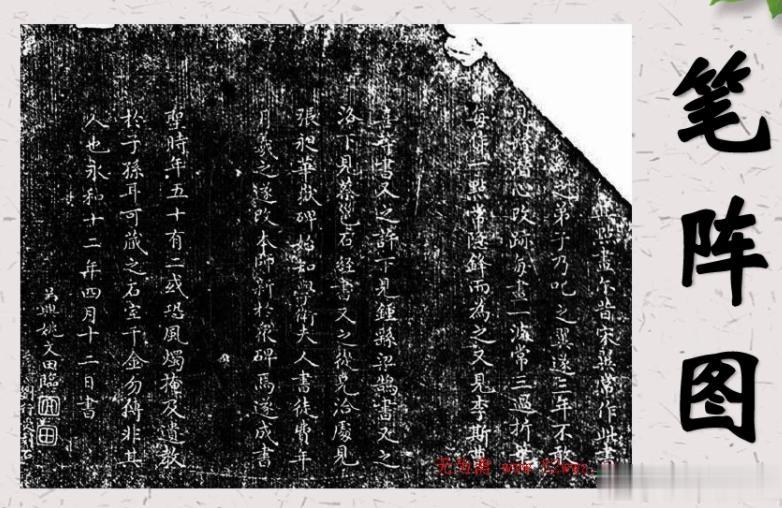 笔阵图
點畫尔昔宋異常作此書
之弟子乃叱之異遂三年不敢
見潛心改跡每畫一波常三過折筆
每作一點常隱鋒而為之又見李斯
喜書又之許下見鍾繇梁鵠書又之
洛下見蔡邕石經書又之從兄洽處見
張昶華嶽碑始知學衛夫人書徒費年
月羲之遂改本師新於衆碑焉遂成書
聖時年五十有二或恐風燭掩及遺教
於子孫耳可藏之石室千金勿傳非其
人也永和十二年四月十二日書
吳興姚文田臨